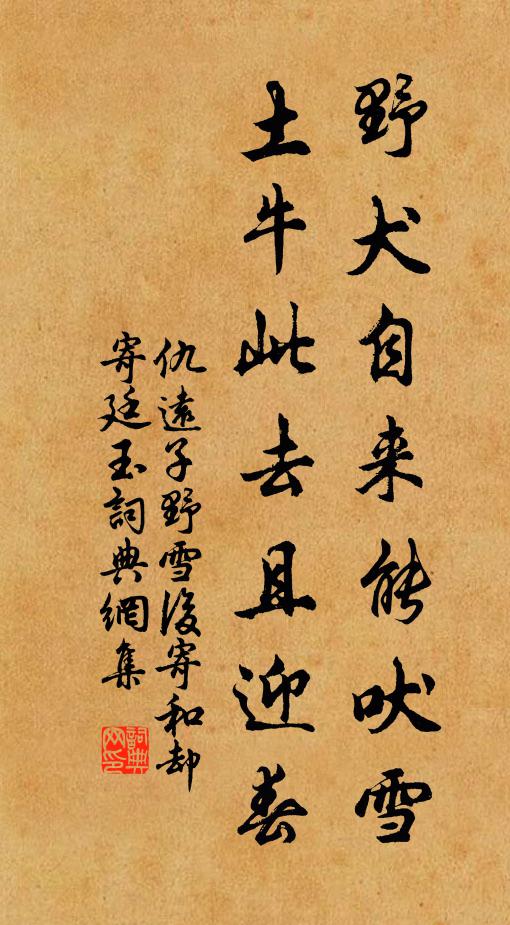 野犬自来能吠雪
土牛此去且迎春
仇遠子野雪後寄和却
寄廷玉詞典網集
詞典网印